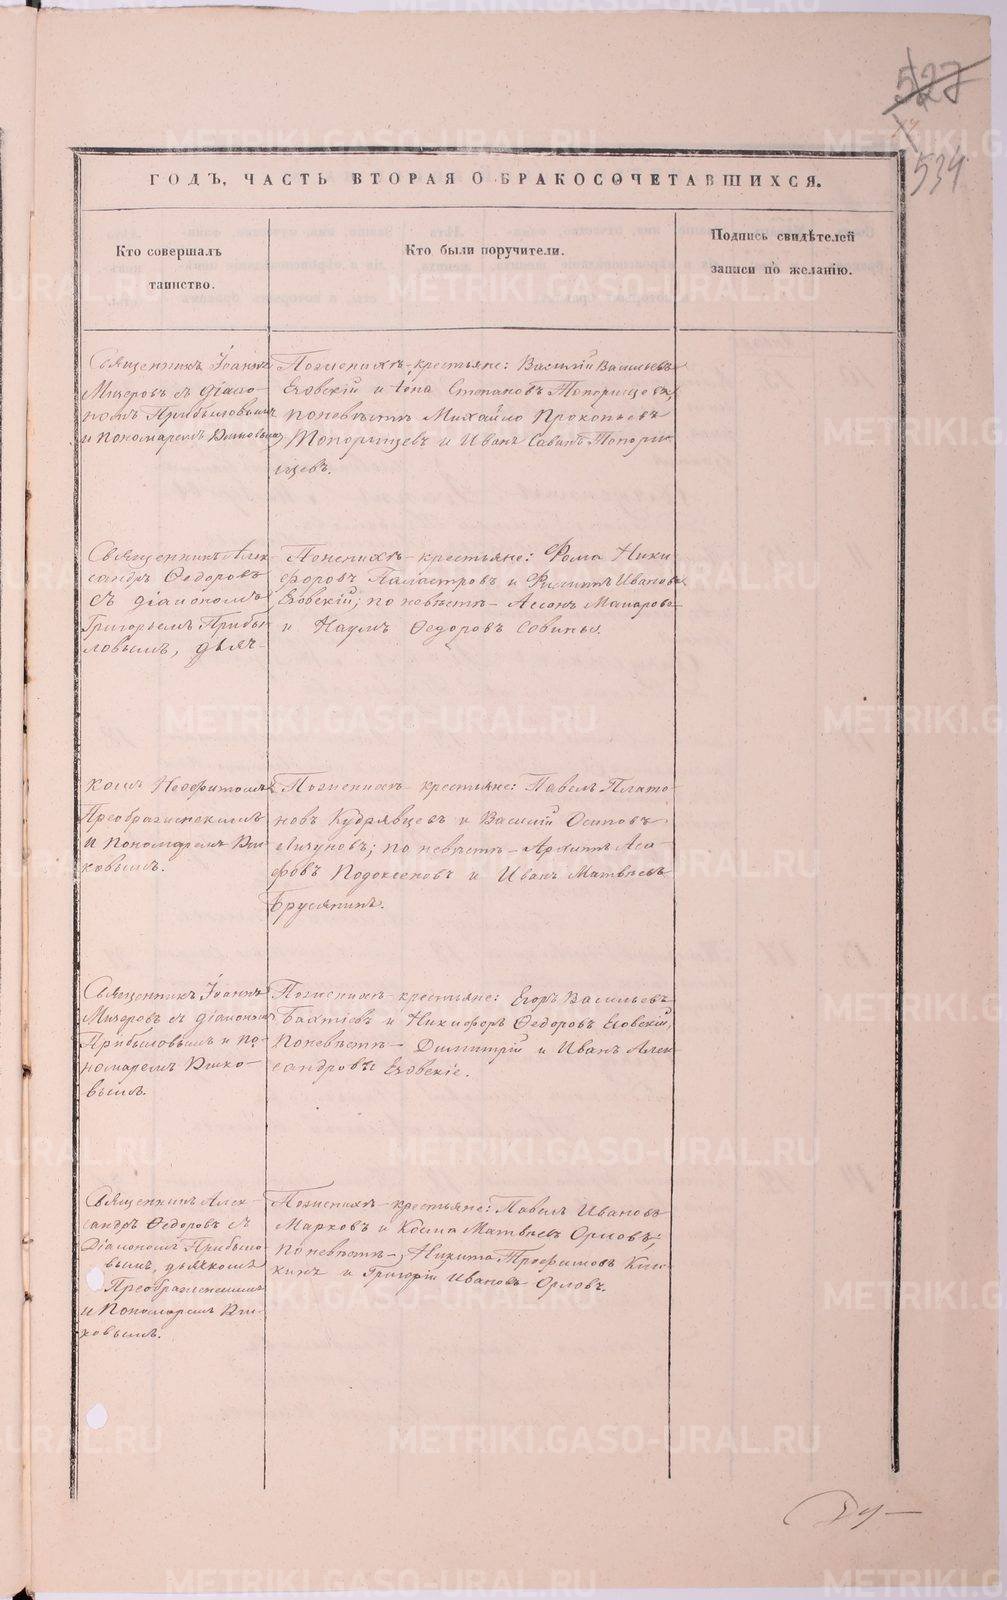 527
534
ГОДЪ, ЧАСТЬ ВТОРАЯ О БРАКОСОЧЕТАВШИХСЯ.
Кто совершалъ
таинство.
Кто были поручители.
Подпись свидѣтелей
записи по желанію.
Священникъ Іоаннъ
Мизеровъ съ діако-
номъ Прибыловымъ
и пономаремъ
По женихѣ крестьяне: Василій Васильевъ
Еховскій и Іона Степановъ Топорищевъ,
по невѣстѣ Михайло Прокопьевъ
Топорищевъ и Иванъ Савинъ Топори-
щевъ.
Священникъ Алек-
сандръ Ѳедоровъ
съ діакономъ
Григорьемъ Прибы-
ловымъ, дьяч-
По женихѣ – крестьяне: Фома Ники-
форовъ и Филиппъ Ивановъ
Еховскій; по невѣстѣ – Макаровъ
и Наумъ Ѳедоровъ
комъ Неофитомъ
Преображенскимъ
и Пономаремъ
По женихѣ – крестьяне: Павелъ Плато-
новъ Кудрявцевъ и Василій Осиповъ
по невѣстѣ – Архипъ
и Иванъ Матвѣевъ
Брусянинъ.
Священникъ Іоаннъ
Мизеровъ съ діакономъ
Прибыловымъ и по-
номаремъ
По женихѣ – крестьяне: Егоръ Васильевъ
Бахтіевъ и Никифоръ Ѳедоровъ Еховскій,
По невѣстѣ – Димитрій и Иванъ Алек-
сандровы Еховскіе.
Священникъ Алек-
сандръ Ѳедоровъ съ
Діакономъ Прибыло-
вымъ, дьячкомъ
Преображенскимъ
и Пономаремъ
По женихѣ – крестьяне: Павелъ Ивановъ
Марковъ и Косма Матвѣевъ Орловъ;
по невѣстѣ – Никита Трофимовъ
и Григорій Ивановъ Орловъ.
METRIKI.GASO-URAL.RU